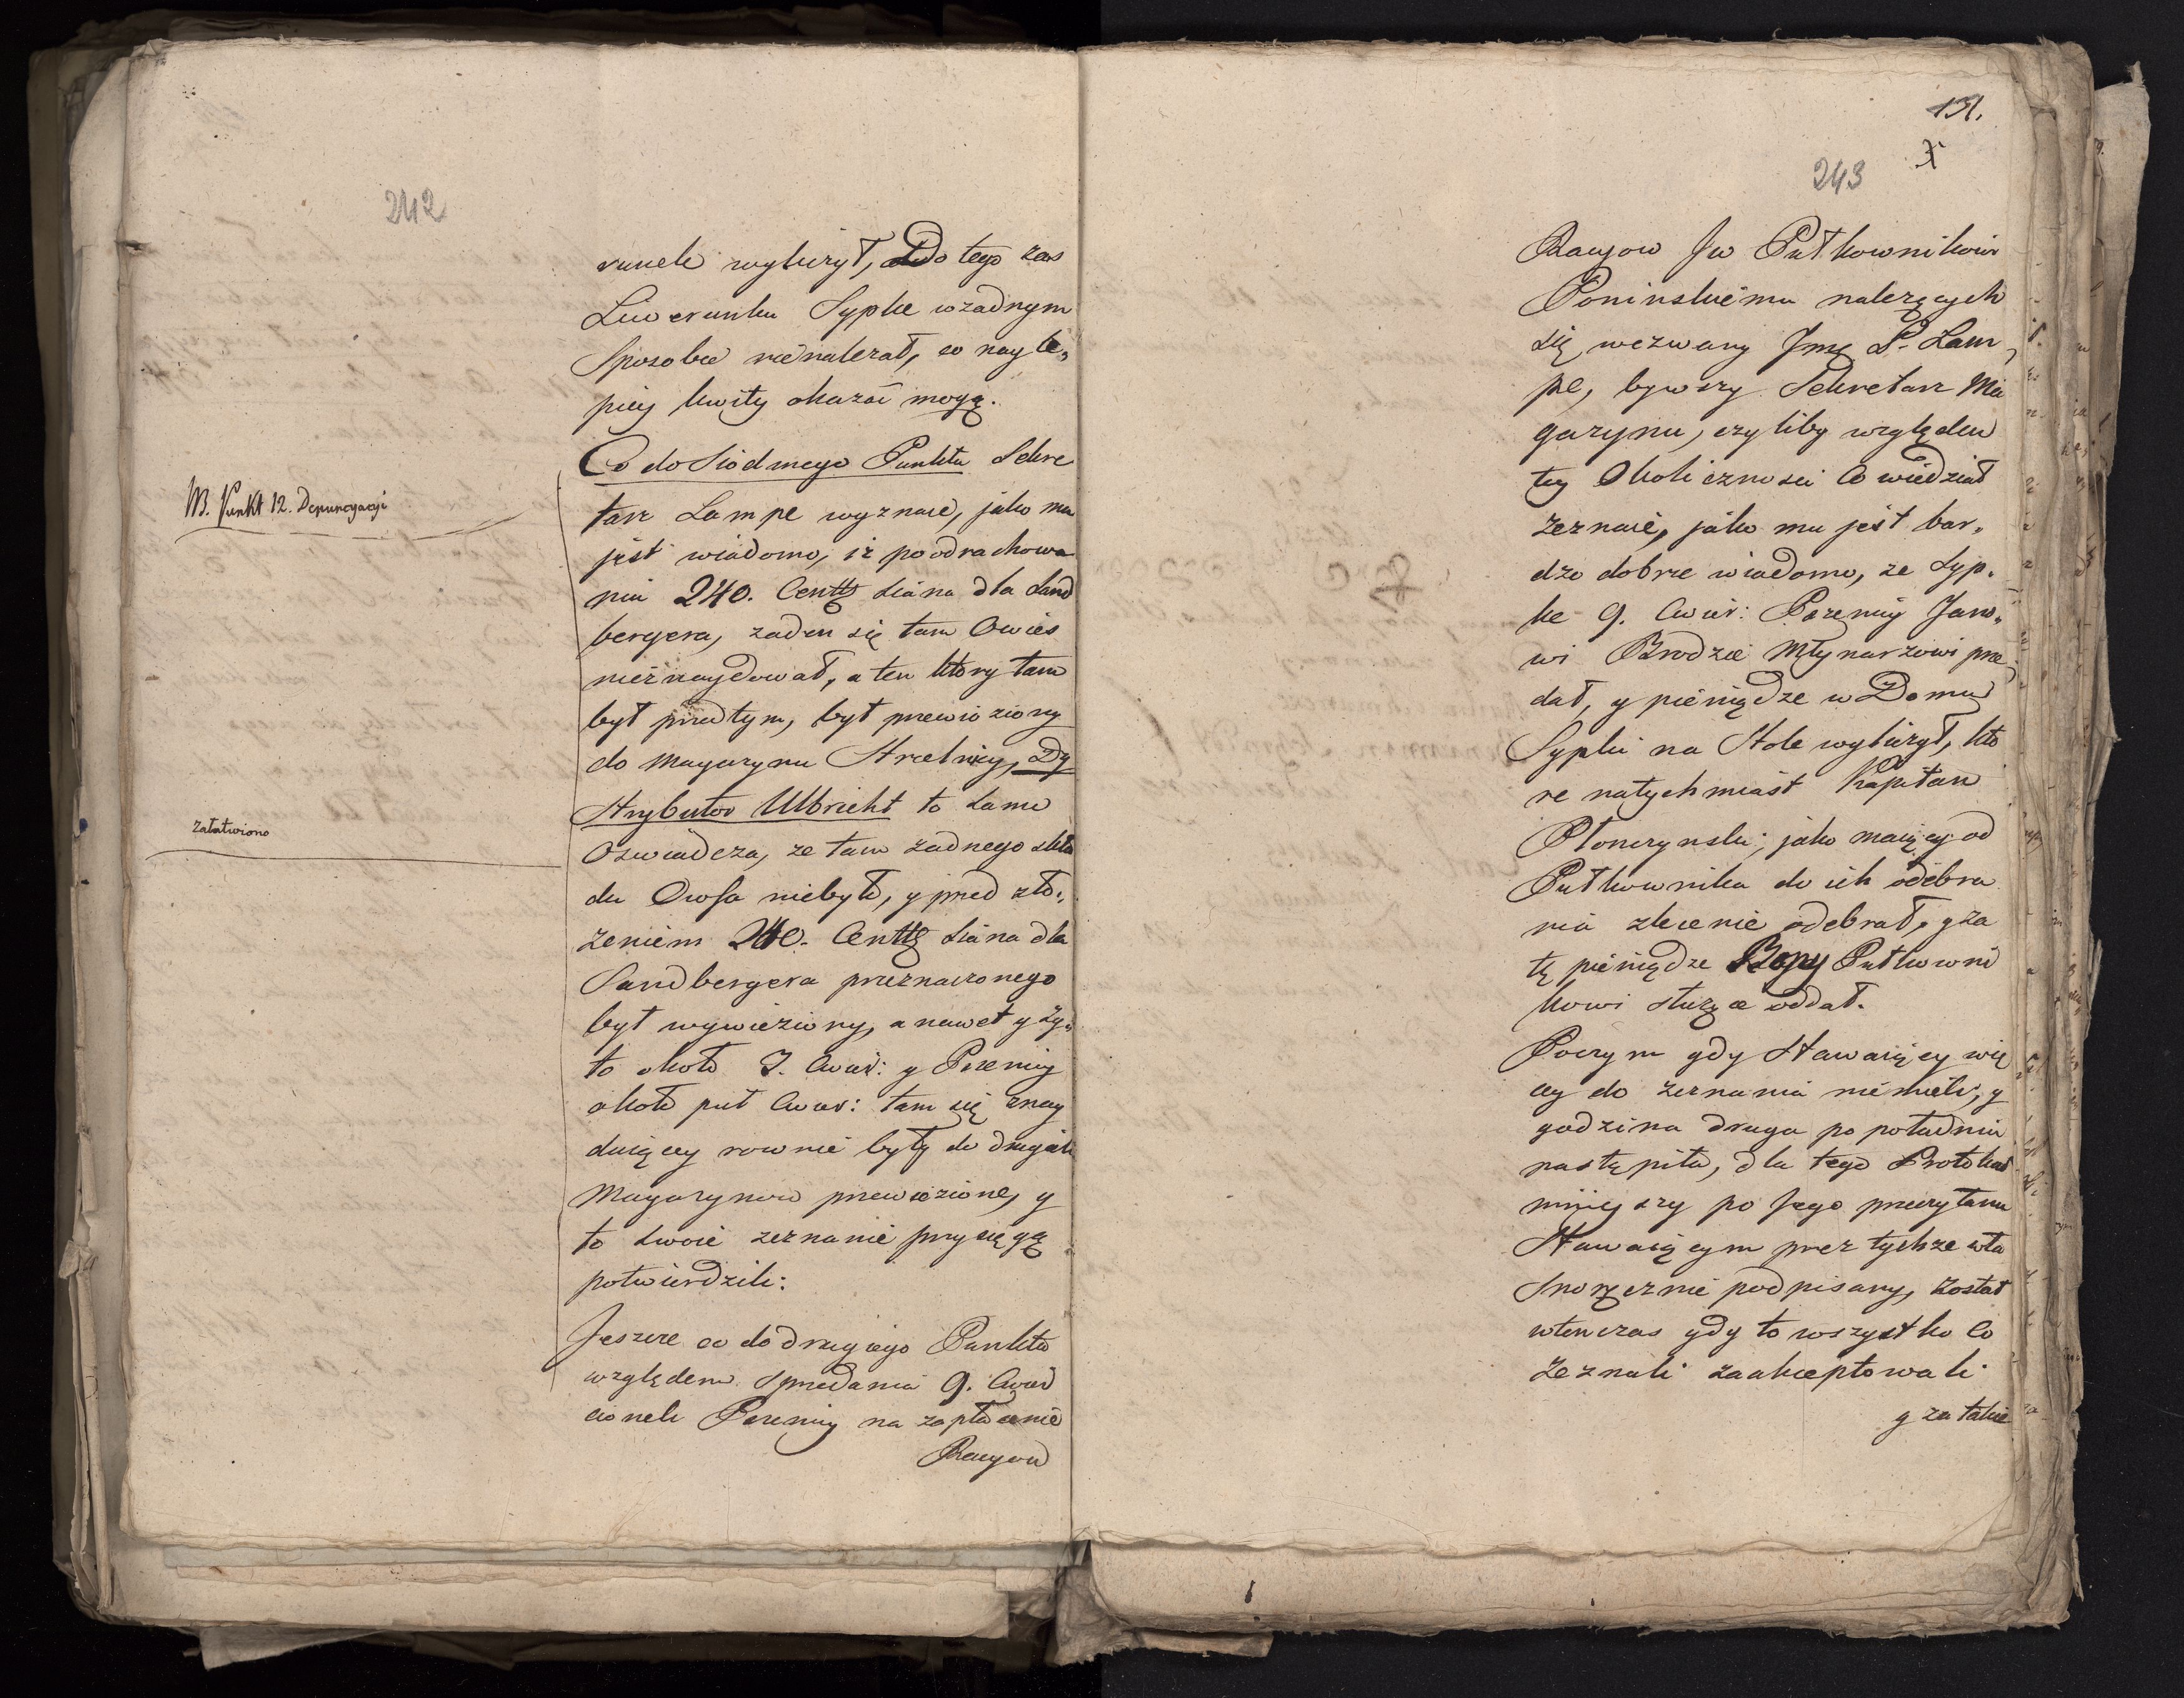 242
runek wyliczył, Do tego zas
Liwerunku Sypke wzadnym
Sposobie nie nalezał, co nayle„
piey kwity okazać mogą.
Co do Siodmego Punktu Sekre
NB. Punkt 12. Denuncyacyi
tarz Lampe wyznaie, jako mu
jest wiadomo, iz po odrachowa
niu 240. Centt Siana dla Sand
bergera, zaden się tam Owies
nieznaydował, a ten ktory tam
był przedtym, był przewieziony
do Magazynu Strzelnicy, Dy
strybutor Ulbricht to samo
Zatatwiono
Oswiadcza, ze tam zadnego skła
du Owsa niebyło, y przed zło„
zeniem 240. Centt Siana dla
Sandbergera przeznaczonego
był wywieziony, a nawet y Zy„
to około 7. Cwier: y Pszenicy
około puł Cwier: tam się znay
duiącey rownie były do drugich
Magazynow przewiezione, y
to swoie zeznanie przysięgą
potwierdzili:
Jeszcze co do drugiego Punktu
względem Sprzedania 9. Cwier
cionek Pszenicy na zapłacenie
Racyow
131.
X
243
Racyow Jw Pułkownikowi
Poninskiemu nalezących
się, wezwany Jmć P. Lam„
pe, bywszy Sekretarz Ma
gazynu, czyliby względem
tey Okolicznosci Co wiedział
zeznaie, jako mu jest bar„
dzo dobrze wiadomo, ze Syp„
ke 9. Cwier: Pszenicy Jano„
wi Brodzie Młynarzowi prze„
dał, y pieniądze w Domu
Sypki na Stole wyliczył, kto
re natychmiast Kapitan
Płonczynski, jako maiący od
Pułkownika do ich odebra
nia zlecenie odebrał, y za
te pieniądze Pułkowni
kowi słuzące oddał.
Poczym gdy Stawaiący wię
cey do zeznania niemieli, y
godzina druga po południu
nastąpiła, dla tego Protokuł
ninieyszy po Jego przeczytaniu
Stawaiącym przez tychze wła
snoręcznie podpisany, został
wtenczas gdy to wszystko Co
Zeznali zaakceptowali
y za takie